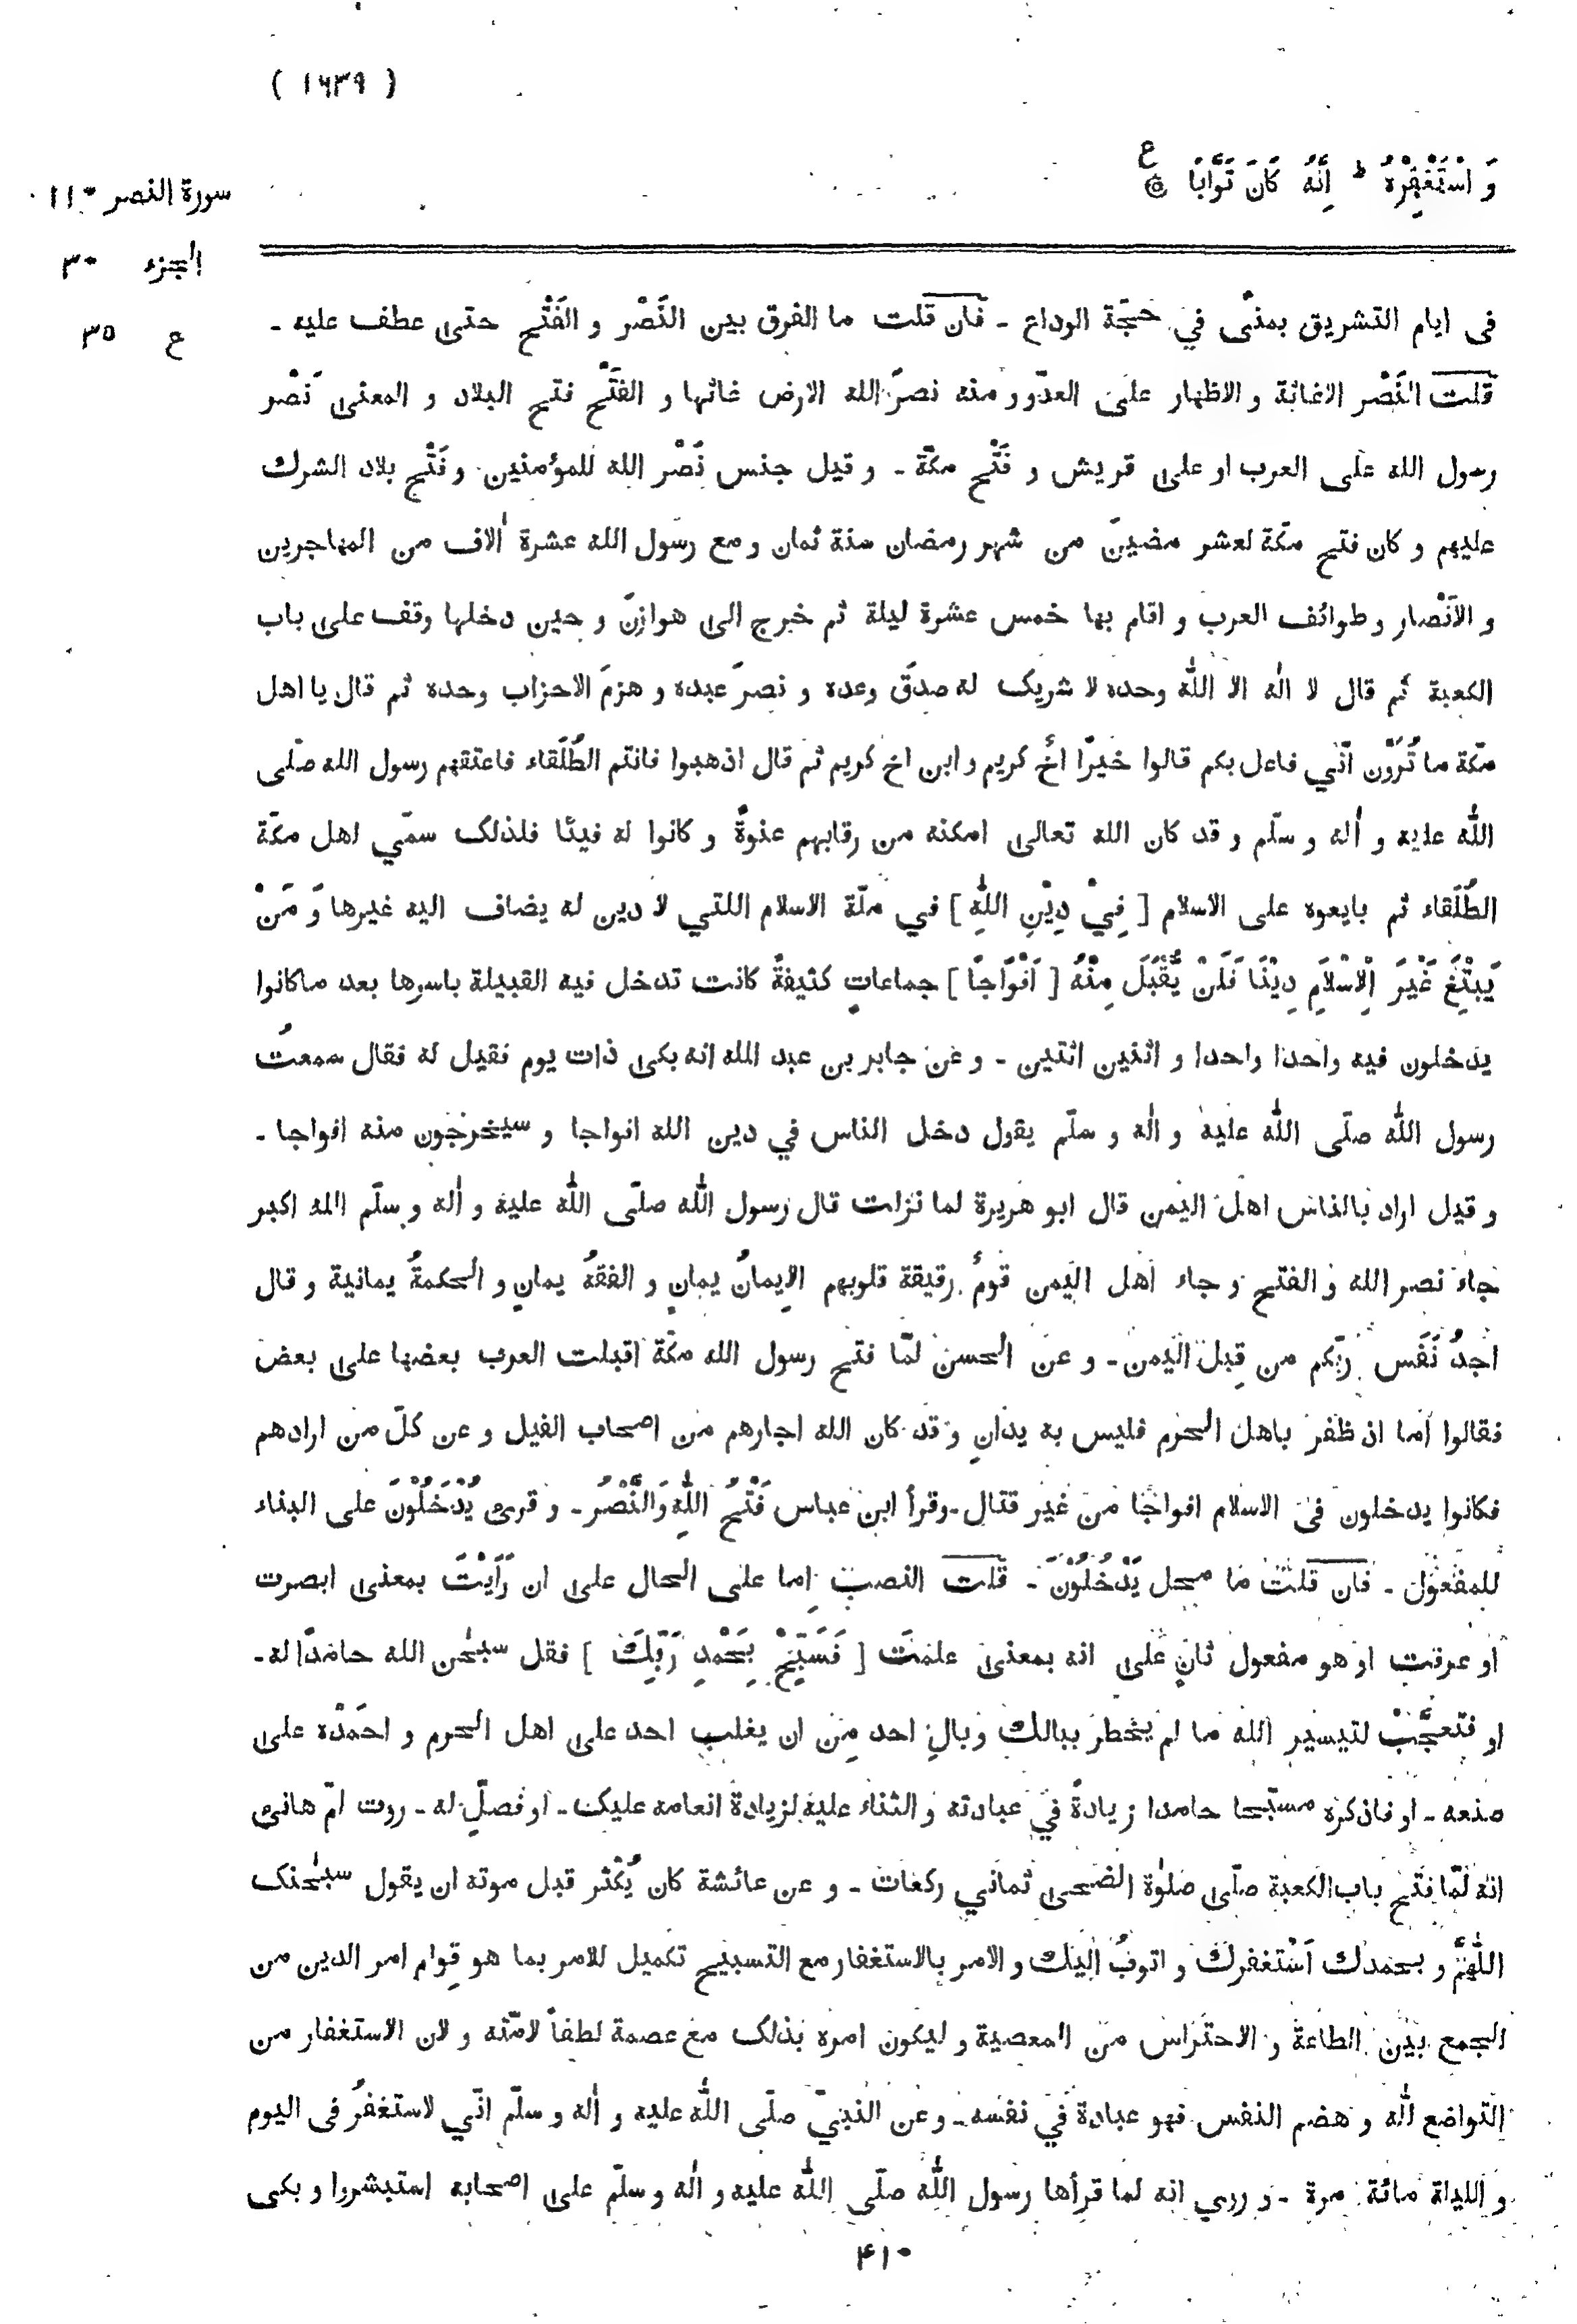 ( ١٦٣٩ )
وَ اسْتَغْفِرْهُ ط اِنَّهُ كَانَ تَوَّابًا ۞ ع
سورة النصر ١١٠
الجزء ٣٠
ع ٣٥
فى ايام التشريق بمنًى في حجّة الوداع ـ فان قلت ما الفرق بين النَصْر و الفَتْح حتى عطف عليه ـ
قلت النَصْر الاغاثة و الاظهار على العدّو و منه نصرَ الله الارض غاثها و الفَتْح فتح البلاد و المعنى نَصْر
رسول الله على العرب او على قريش و فَتْح مكّة ـ و قيل جنس نَصْر الله للمؤمنين و فَتْح بلاد الشرك
عليهم و كان فتح مكّة لعشر مضينَ من شهر رمضان سنة ثمان و مع رسول الله عشرة اٰلاف من المهاجرين
و الاَنْصار و طوائف العرب و اقام بها خمس عشرة ليلة ثم خرج الى هوازنَ و حين دخلها وقف على باب
الكعبة ثم قال لا اله الا اللّٰه وحده لا شريك له صدقَ وعده و نصرَ عبده و هزمَ الاحزاب وحده ثم قال يا اهل
مكّة ما تُرَوْن انّي فاعل بكم قالوا خيرًا اخٌ كريم و ابن اخ كريم ثم قال اذهبوا فانتم الطُلَقاء فاعتقهم رسول الله صلّى
اللّٰه عليه و اٰله و سلّم و قد كان الله تعالى امكنه من رقابهم عنوةً و كانوا له فيئا فلذلك سمّي اهل مكّة
الطُلَقاء ثم بايعوه على الاسلام [ فِيْ دِيْنِ اللّٰهِ ] في ملّة الاسلام اللتي لا دين له يضاف اليه غيرها وَ مَنْ
يَبْتَغِ غَيْرَ الْاِسْلَامِ دِيْنًا فَلَنْ يُقْبَلَ مِنْهُ [ اَفْوَاجًا ] جماعاتٍ كثيفةً كانت تدخل فيه القبيلة باسرها بعد ما كانوا
يدخلون فيه واحدا واحدا و اثنين اثنين ـ و عن جابر بن عبد الله انه بكى ذات يوم فقيل له فقال سمعتُ
رسول اللّٰه صلّى اللّٰه عليه و اٰله و سلّم يقول دخل الناس في دين الله افواجا و سيخرجون منه افواجا ـ
و قيل اراد بالناس اهل اليمن قال ابو هريرة لما نزلت قال رسول اللّٰه صلّى اللّٰه عليه و اٰله و سلّم الله اكبر
جاء نصر الله و الفتح و جاء اهل اليمن قومٌ رقيقة قلوبهم الايمانُ يمانٍ و الفقهُ يمانٍ و الحكمةُ يمانية و قال
اجدُ نَفَس ربّكم من قِبل اليمن ـ و عن الحسن لمّا فتح رسول الله مكّة اقبلت العرب بعضها على بعض
فقالوا اما اذ ظفر باهل الحرم فليس به يدانِ و قد كان الله اجارهم من اصحاب الفيل و عن كلّ من ارادهم
فكانوا يدخلون فى الاسلام افواجًا من غير قتال ـ وقرأ ابن عباس فَتْحُ اللّٰهِ وَالنَّصْرُ ـ و قرئ يُدْخَلُوْنَ على البناء
للمفعول ـ فان قلت ما محل يَدْخُلُوْنَ ـ قلت النصب اما على الحال على ان رَاَيْتَ بمعنى ابصرت
او عرفت او هو مفعول ثانٍ على انه بمعنى علمتَ [ فَسَبِّحْ بِحَمْدِ رَبِّكَ ] فقل سبحٰن الله حامدًا له ـ
او فتعجَّبْ لتيسير الله ما لم يخطر ببالك و بالِ احد مِن ان يغلب احد على اهل الحرم و احمَدْه على
صنعه ـ او فاذكره مسبّحا حامدا زيادةً في عبادته و الثناء عليه لزيادة انعامه عليك ـ او فصلّ له ـ روت امّ هانئ
انه لمّا فتح باب الكعبة صلّى صلٰوة الضحى ثماني ركعات ـ و عن عائشة كان يُكْثر قبل موته ان يقول سبحٰنك
اللّٰهمَّ و بحمدك اَسْتغفرك و اتوبُ اليك و الامر بالاستغفار مع التسبيح تكميل للامر بما هو قِوام امر الدين من
الجمع بين الطاعة و الاحتراس من المعصية و ليكون امره بذلك مع عصمة لطفاً لامّته و لان الاستغفار من
التواضع للّٰه و هضم النفس فهو عبادة في نفسه ـ و عن النبيّ صلّى اللّٰه عليه و اٰله و سلّم انّي لاستغفرُ فى اليوم
و الليلة مائة مرة ـ و روي انه لما قرأها رسول اللّٰه صلّى اللّٰه عليه و اٰله و سلّم على اصحابه استبشروا و بكى
٤١٠